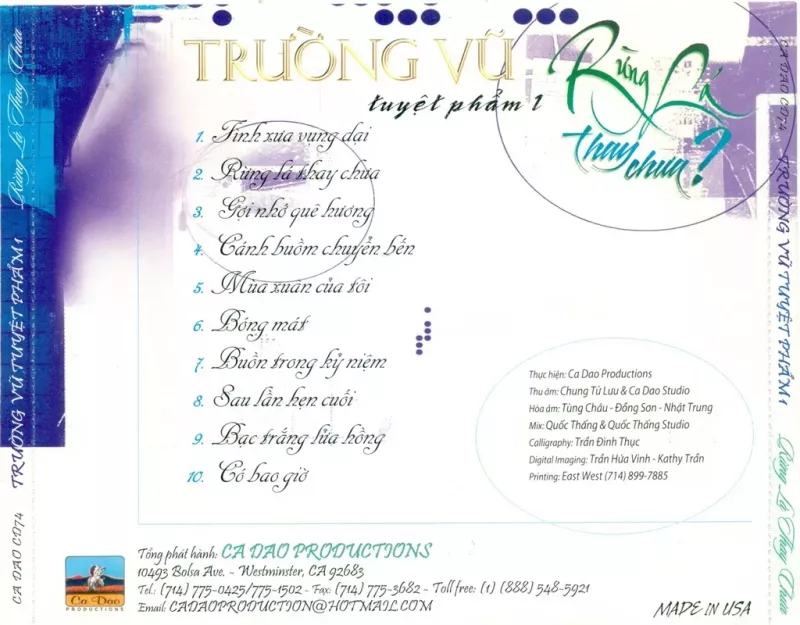 TRƯỜNG VŨ
tuyệt phẩm 1
Rừng Lá
thay chưa?
1. Tình xưa vụng dại
2. Rừng lá thay chưa
3. Gợi nhớ quê hương
4. Cánh buồm chuyển bến
5. Mùa xuân của tôi
6. Bóng mát
7. Buồn trong kỷ niệm
8. Sau lần hẹn cuối
9. Bạc trắng lửa hồng
10. Có bao giờ
Thực hiện: Ca Dao Productions
Thu âm: Chung Tử Lưu & Ca Dao Studio
Hòa âm: Tùng Châu - Đồng Sơn - Nhật Trung
Mix: Quốc Thắng & Quốc Thắng Studio
Calligraphy: Trần Đình Thục
Digital Imaging: Trần Hứa Vinh - Kathy Trần
Printing: East West (714) 899-7885
Ca Dao
PRODUCTIONS
Tổng phát hành: CA DAO PRODUCTIONS
10493 Bolsa Ave. - Westminster, CA 92683
Tel.: (714) 775-0425/775-1502 - Fax: (714) 775-3682 - Toll free: (1) (888) 548-5921
Email: CADAOPRODUCTION@HOTMAIL.COM
MADE IN USA
CA DAO CD74 TRƯỜNG VŨ TUYỆT PHẨM 1 Rừng Lá Thay Chưa
CA DAO CD74 TRƯỜNG VŨ TUYỆT PHẨM 1 Rừng Lá Thay Chưa